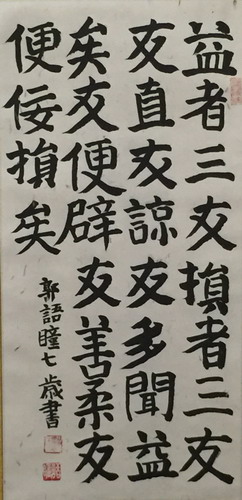 益者三友損者三友
友直友諒友多聞益
矣友便辟友善柔友
便佞損矣
郭語瞳七歲書